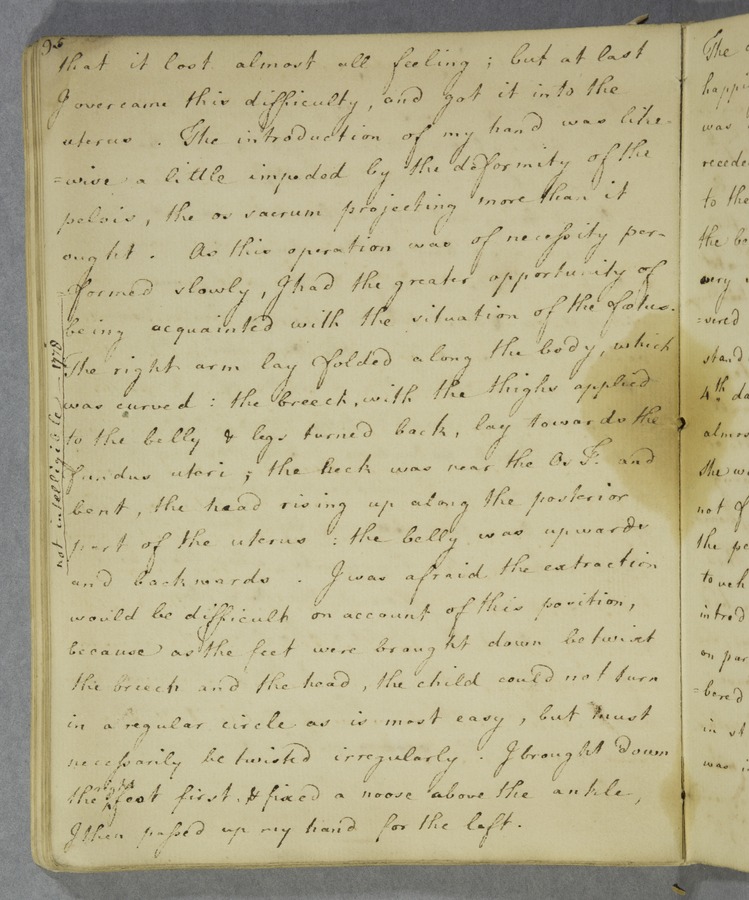 that it lost almost all feeling ; but at last
I overcame this difficulty, and got it into the
uterus . The introduction of my hand was like-
=wise a little impeded by the deformity of the
pelvis, the os sacrum projecting more than it
ought . As this operation was of necessity per-
=formed slowly, I had the greater opportunity of
being acquainted with the situation of the fœtus.
The right arm lay folded along the body, which
was curved : the breech, with the thighs applied
to the belly & legs turned back, lay towards the
fundus uteri ; the neck was near the Os T. and
bent, the head rising up along the posterior
part of the uterus : the belly was upwards
and backwards . I was afraid the extraction
would be difficult on account of this position,
because as the feet were brought down betwixt
the breech and the head, the child could not turn
in a regular circle as is most easy, but must
necessarily be twisted irregularly . I brought down
the right foot first & fixed a noose above the ankle,
I then passed up my hand for the left .
not intelligible — 1778
The
happ
was
receded
to the
the bo
very
=vered
stand
4th da
almos
She wa
not of
the pe
touch
introd
on par
=bered
in st
was i